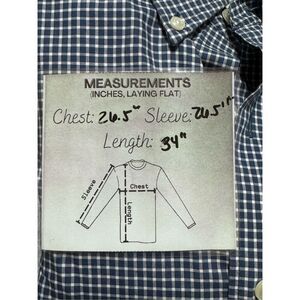 MEASUREMENTS
(INCHES, LAYING FLAT)
Chest: 26.5" Sleeve: 26.5"
Length: 34"
Sleeve
Chest
Length